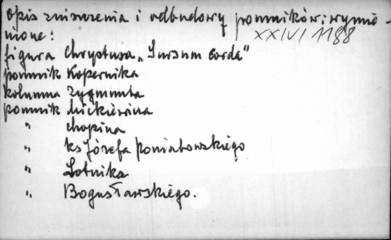 opis zniszczenia i odbudowy pomników; wymie-
nione:
XXIV/1188
figura Chrystusa „Sursum Corda"
pomnik Kopernika
kolumna Zygmunta
pomnik Mickiewicza
" Chopina
" ks Józefa Poniatowskiego
" Lotnika
" Bogusławskiego.